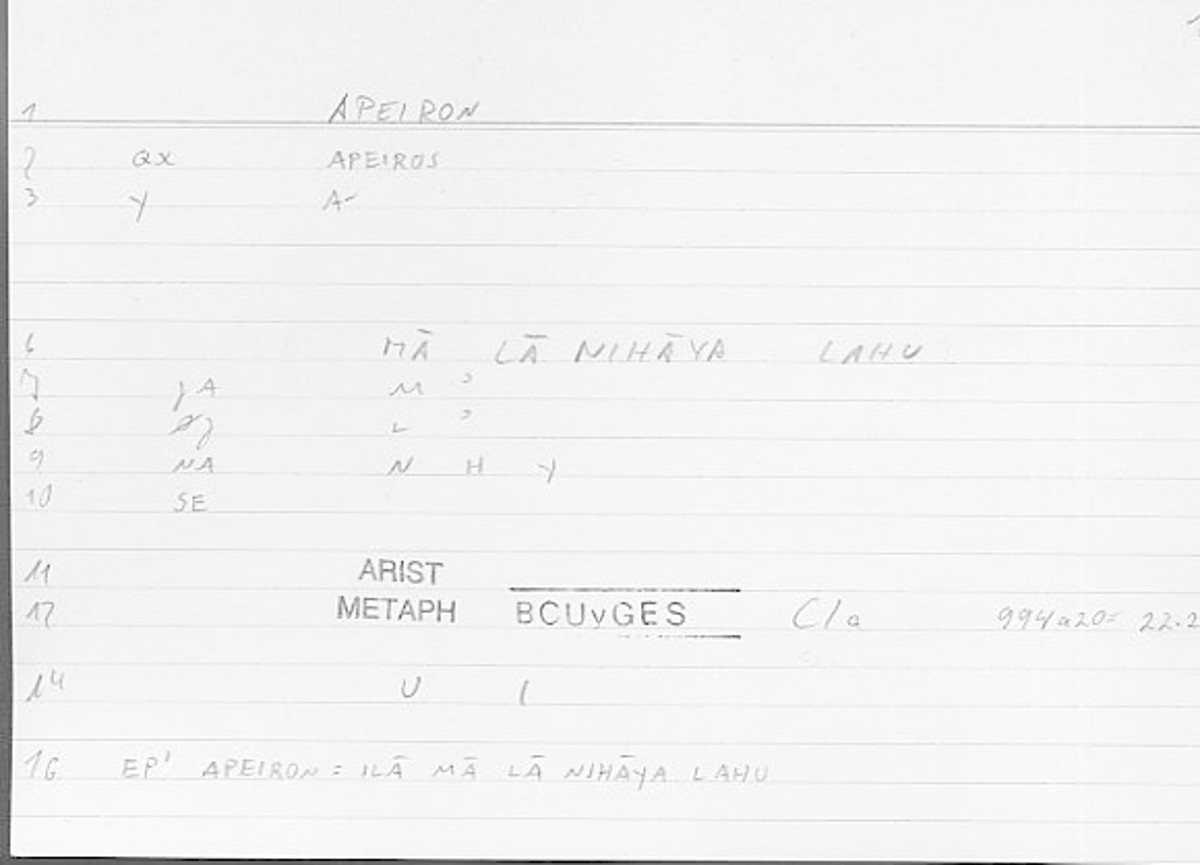 1 APEIRON
2 QX APEIROS
3 Y A-
6 MĀ LĀ NIHĀYA LAHU
7 JA M ʾ
8 L ʾ
9 NA N H Y
10 SE
11 ARIST
12 METAPH BCUvGES C/a 994a20= 22.2
14 U (
16 EP' APEIRON = ILĀ MĀ LĀ NIHĀYA LAHU